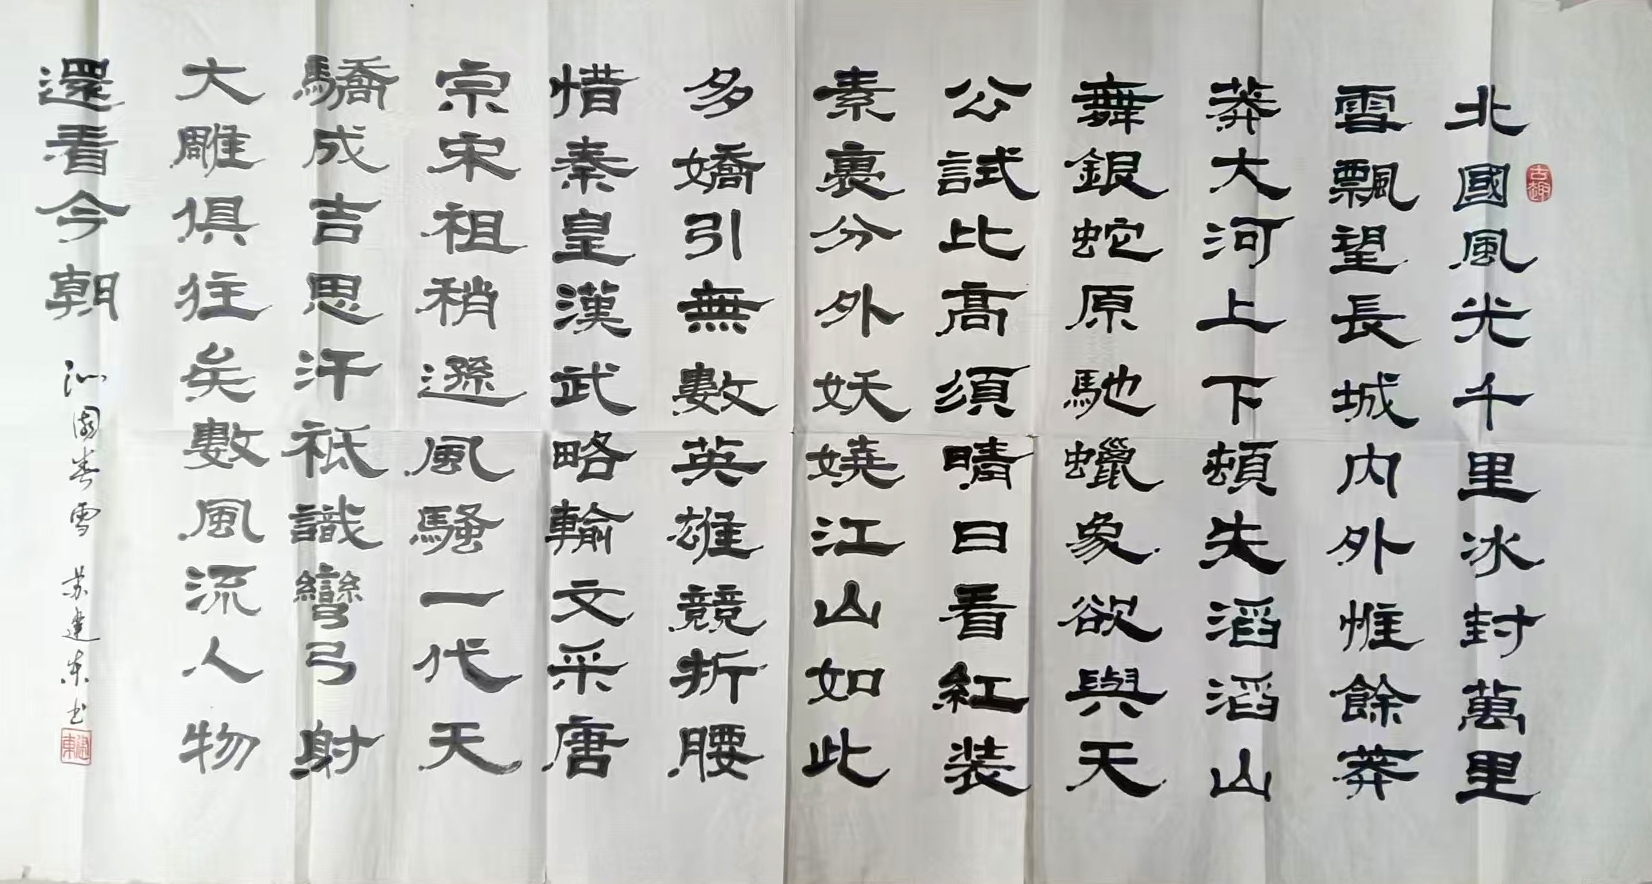 北國風光千里冰封萬里
雪飄望長城內外惟餘莽
莽大河上下頓失滔滔山
舞銀蛇原馳蠟象欲與天
公試比高須晴日看紅装
素裹分外妖嬈江山如此
多嬌引無數英雄競折腰
惜秦皇漢武略輸文采唐
宗宋祖稍遜風騷一代天
驕成吉思汗祗識彎弓射
大雕俱往矣數風流人物
還看今朝
沁園春雪 苏建东书
古趣
建東